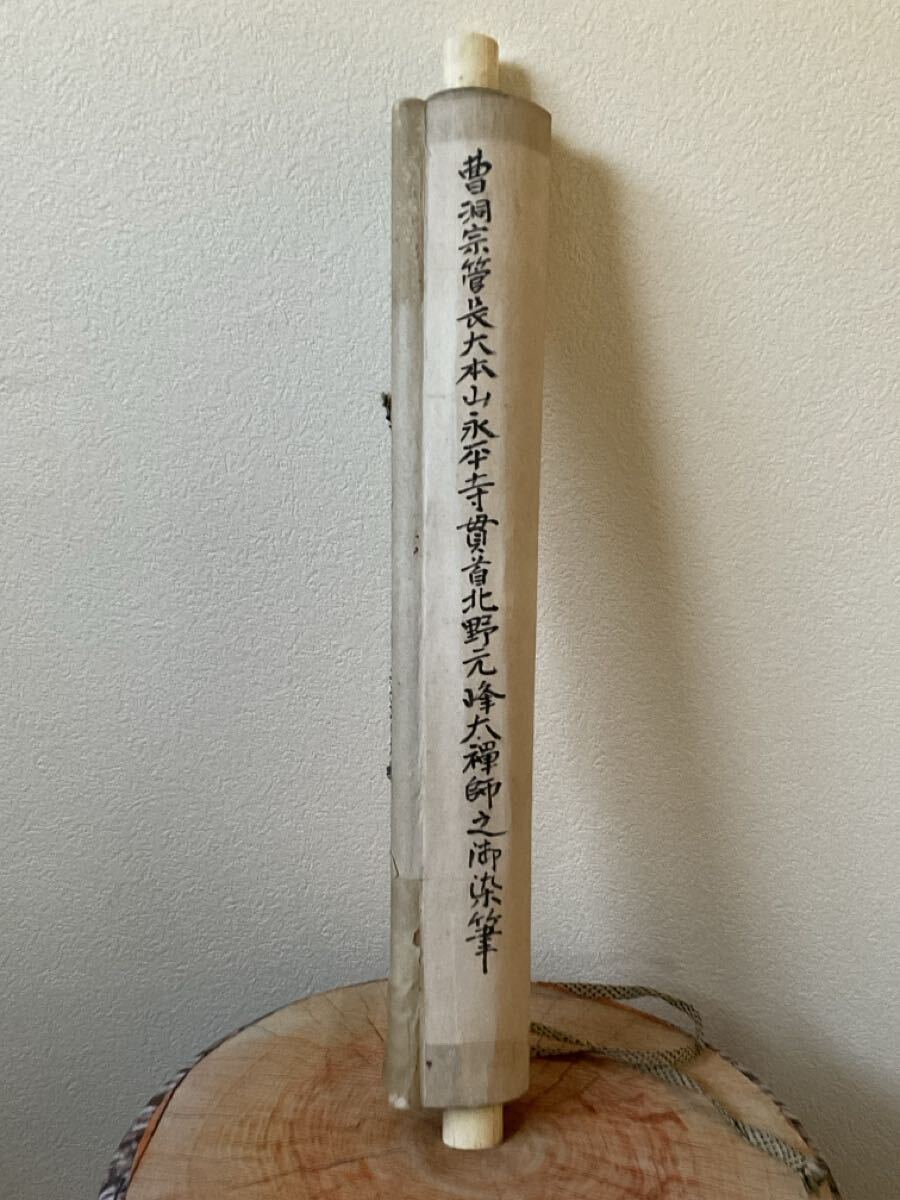 曹洞宗管長大本山永平寺貫首北野元峰大禅師之御染筆